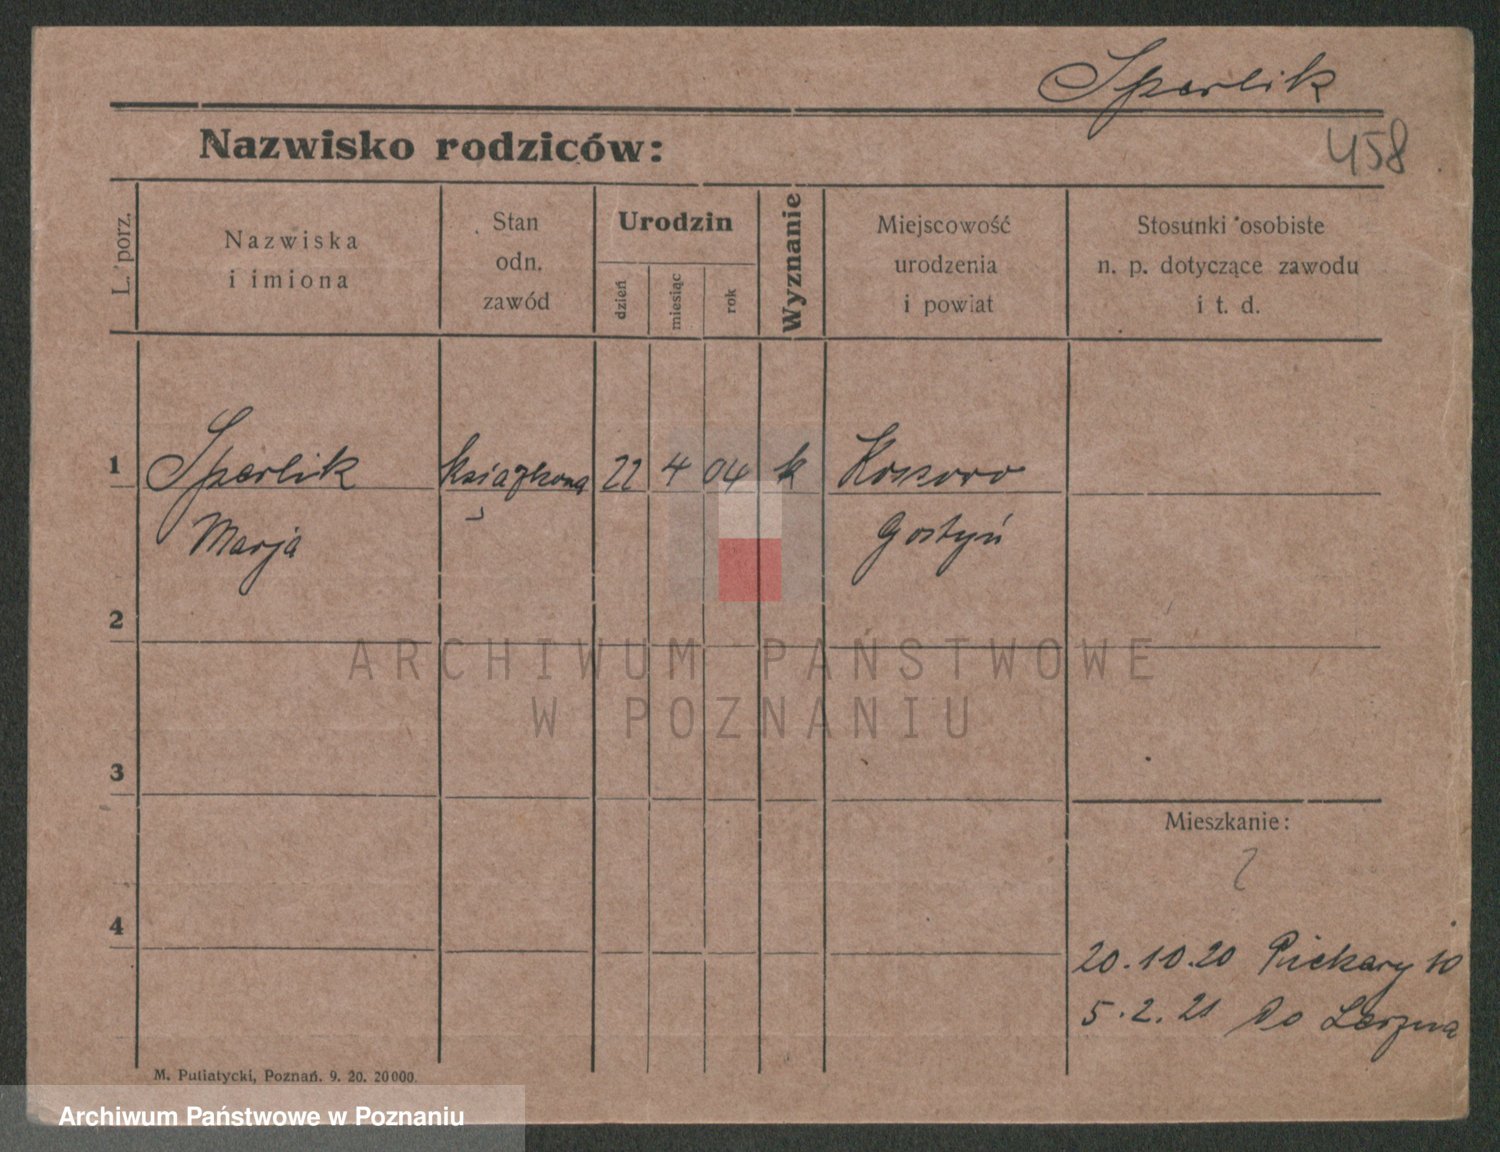 Sperlik
458
Nazwisko rodziców:
L. porz.
Nazwiska
i imiona
Stan
odn.
zawód
Urodzin
dzień
miesiąc
rok
Wyznanie
Miejscowość
urodzenia
i powiat
Stosunki osobiste
n. p. dotyczące zawodu
i t. d.
1
Sperlik
Marja
książkowa
22
4
04
k
Kossowo
Gostyń
2
ARCHIWUM PAŃSTWOWE
W POZNANIU
3
Mieszkanie:
4
20.10.20 Piekary 10
5.2.21 Do
M. Putiatycki, Poznań. 9. 20. 20000.
Archiwum Państwowe w Poznaniu